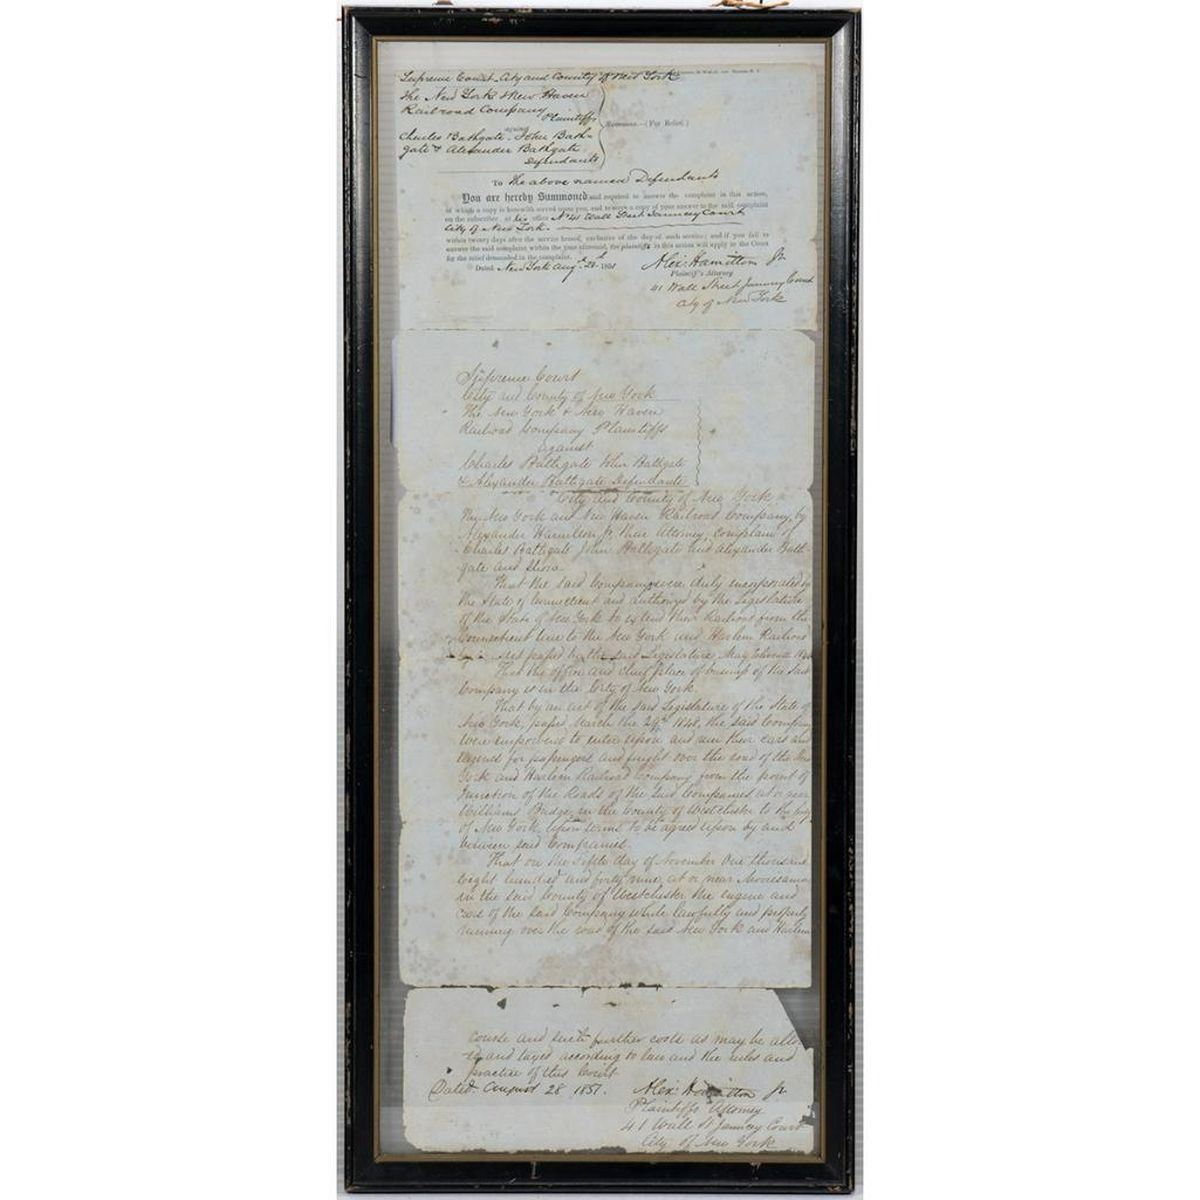 Supreme Court City and County of New York
The New York & New Haven
Railroad Company
Plaintiffs
against
Charles Bathgate John Bath-
gate & Alexander Bathgate
Defendants
Summons.—(For Relief.)
To the above named Defendants
You are hereby Summoned and required to answer the complaint in this action,
of which a copy is herewith served upon you, and to serve a copy of your answer to the said complaint
on the subscriber at his office No 41 Wall Street Jauncey Court
City of New York.
within twenty days after the service hereof, exclusive of the day of such service; and if you fail to
answer the said complaint within the time aforesaid, the plaintiffs in this action will apply to the Court
for the relief demanded in the complaint.
Dated New York Augt 28th 1851
Alex: Hamilton Jr.
Plaintiff's Attorney
41 Wall Street Jauncey Court
City of New York
Supreme Court
City and County of New York
The New York & New Haven
Railroad Company Plaintiffs
against
Charles Bathgate John Bathgate
& Alexander Bathgate Defendants
City and County of New York
The New York and New Haven Railroad Company, by
Alexander Hamilton Jr. their Attorney, complain of
Charles Bathgate John Bathgate and Alexander Bath-
gate and show
That the said Company were duly incorporated by
the State of Connecticut and authorized by the Legislature
of the State of New York to extend their Railroad from the
Connecticut line to the New York and Harlem Railroad
act passed by the said Legislature May Eleventh 1846
That the office and chief place of business of the said
Company is in the City of New York.
That by an act of the said Legislature of the State of
New York, passed March the 29th 1848, the said Company
were empowered to enter upon and run their cars and
engines for passengers and freight over the road of the New
York and Harlem Railroad Company from the point of
Junction of the Roads of the said Companies at or near
Williams Bridge, in the County of Westchester to the City
of New York, upon terms to be agreed upon by and
between said Companies.
That on the fifth day of November One thousand
Eight hundred and forty nine, at or near Morrisania
in the said County of Westchester the engine and
cars of the said Company while lawfully and properly
running over the road of the said New York and Harlem
course and such further costs as may be allo-
ed and taxed according to law and the rules and
practice of this Court
Dated August 28 1851.
Alex: Hamilton Jr.
Plaintiffs Attorney
41 Wall St Jauncey Court
City of New York